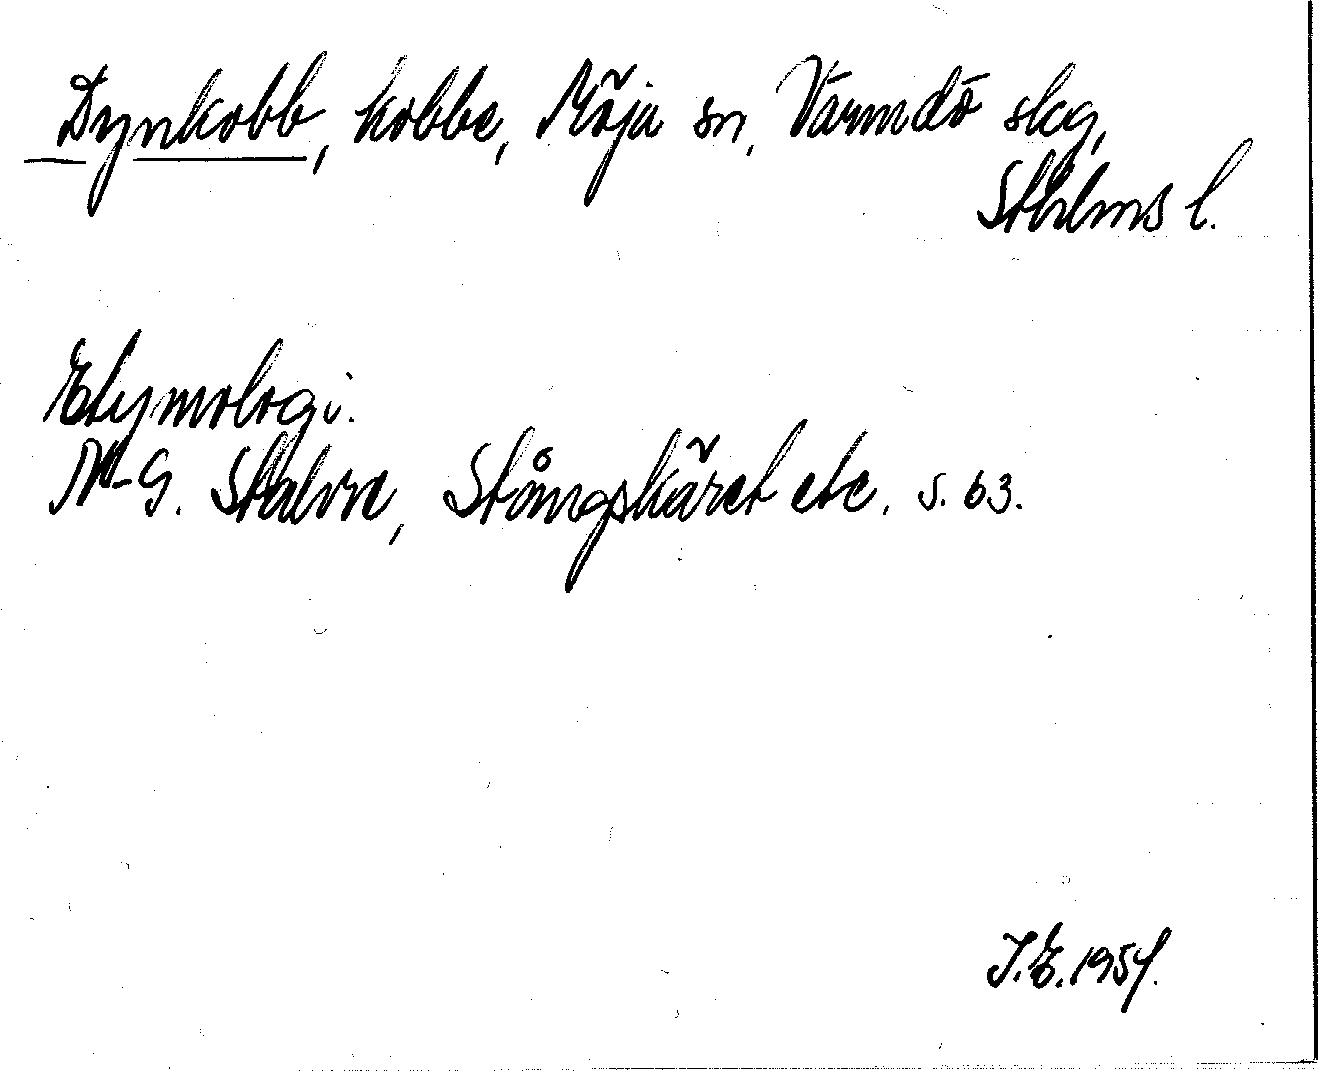 Dynkobb, kobbe, Möja sn, Värmdö skg,
Sthlms l.
Etymologi.
N-G. Stahre, Stångskäret etc. s. 63.
J.E. 1954.